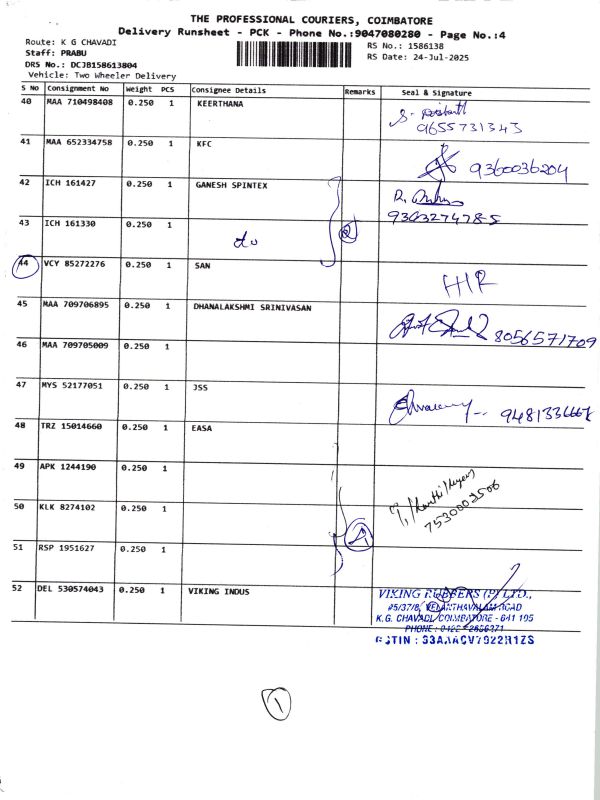 THE PROFESSIONAL COURIERS, COIMBATORE
Delivery Runsheet - PCK - Phone No.:9047080280 - Page No.:4
Route: K G CHAVADI
Staff: PRABU
DRS No.: DCJB158613804
Vehicle: Two Wheeler Delivery
RS No.: 1586138
RS Date: 24-Jul-2025
S No Consignment No Weight PCS Consignee Details Remarks Seal & Signature
40 MAA 710498408 0.250 1 KEERTHANA
9655731343
41 MAA 652334758 0.250 1 KFC
9360036204
42 ICH 161427 0.250 1 GANESH SPINTEX
9363274785
43 ICH 161330 0.250 1 do 2
44 VCY 85272276 0.250 1 SAN
45 MAA 709706895 0.250 1 DHANALAKSHMI SRINIVASAN
8056571709
46 MAA 709705009 0.250 1
47 MYS 52177051 0.250 1 JSS
48 TRZ 15014660 0.250 1 EASA
49 APK 1244190 0.250 1
50 KLK 8274102 0.250 1
51 RSP 1951627 0.250 1
52 DEL 530574043 0.250 1 VIKING INDUS
VIKING RUBBERS (P) LTD.,
#5/37/8, VELANTHAVALAM ROAD
K.G. CHAVADI, COIMBATORE - 641 105
1